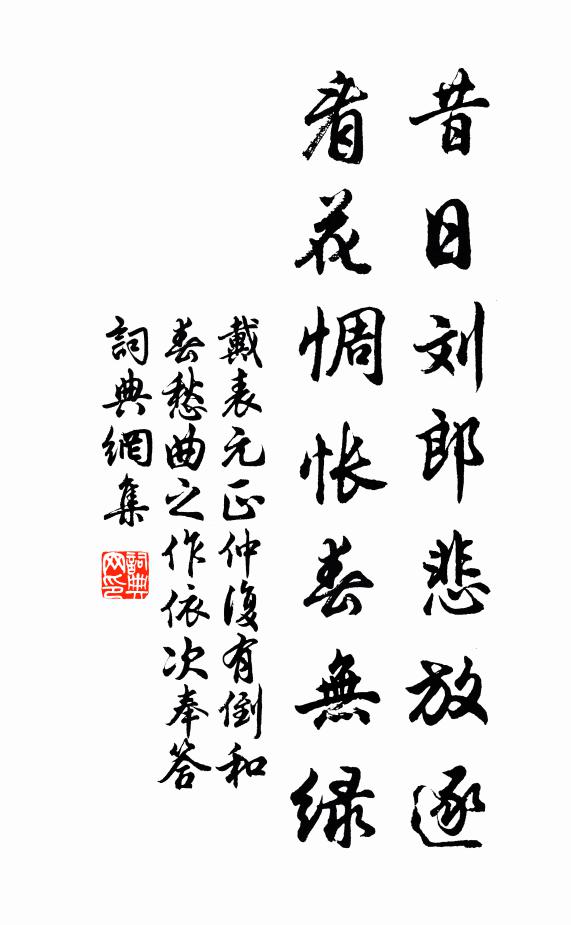 昔日刘郎悲放逐
看花惆怅春無緑
戴表元正仲復有倒和
春愁曲之作依次奉答
詞典網集
詞典
网印